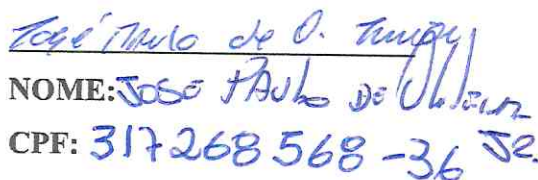 José Paulo de O. Junior
NOME: JOSE PAULO DE OLIVEIRA JR.
CPF: 317268568-36